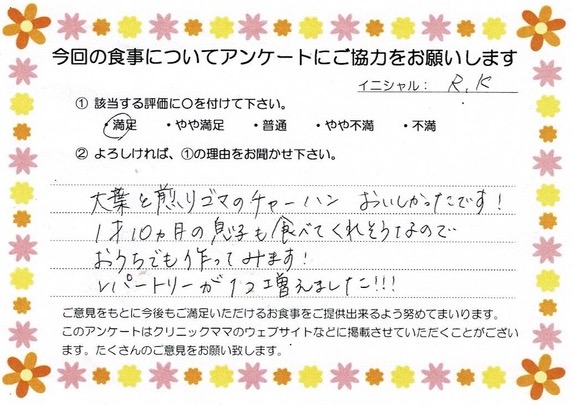 今回の食事についてアンケートにご協力をお願いします
イニシャル： R.K
① 該当する評価に〇を付けて下さい。
・満足 ・やや満足 ・普通 ・やや不満 ・不満
② よろしければ、①の理由をお聞かせ下さい。
大葉と煎りゴマのチャーハン おいしかったです！
1才10ヵ月の息子も食べてくれそうなので
おうちでも作ってみます！
レパートリーが1つ増えました!!!
ご意見をもとに今後もご満足いただけるお食事をご提供出来るよう努めてまいります。
このアンケートはクリニックママのウェブサイトなどに掲載させていただくことがござい
ます。たくさんのご意見をお願い致します。